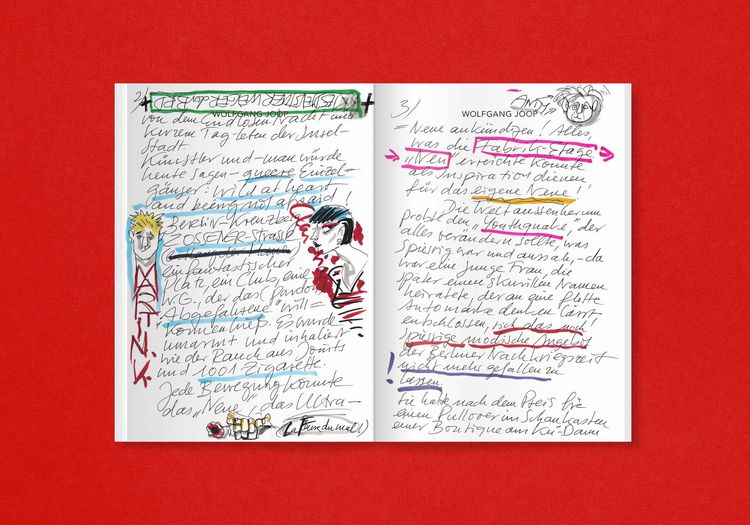 2/
WOLFGANG JOOP
von dem Endlosen Nacht und
kurzem Tag-leben der Insel-
Stadt
Künstler und – man würde
heute sagen – queere Einzel-
gänger: Wild at heart
and being not afraid!
Berlin-Kreuzberg
ZOSENER-Strasse
ein fantastischer
Platz, ein Club, eine
WG., der das (Pardon)
"Abgefahrene" will-
kommen hieß. Es wurde
umarmt und inhaliert
wie der Rauch aus Joints
und 1001 Zigarette.
Jede Bewegung konnte
das "Neue", das Ultra-
MARTIN. K.
du mal!)
3/
ANDY
WOLFGANG JOOP
= Neue ankündigen! Alles,
was die Fabrik-Etage
"Neu" erreichte konnte
als Inspiration dienen
für das eigene Neue!
Die Welt aussenherum
probte den "Youthquake", der
alles verändern sollte, was
spiessig war und aussah, – da
war eine junge Frau, die
später einen skurillen Namen
heiratete, der an eine flotte
Automarke denken lässt
entschlossen, sich das noch
spiessige modische Angebot
der Berliner Nachkriegszeit
nicht mehr gefallen zu
lassen.
Sie hatte nach dem Preis für
einen Pullover im Schaukasten
einer Boutique am Ku-Damm